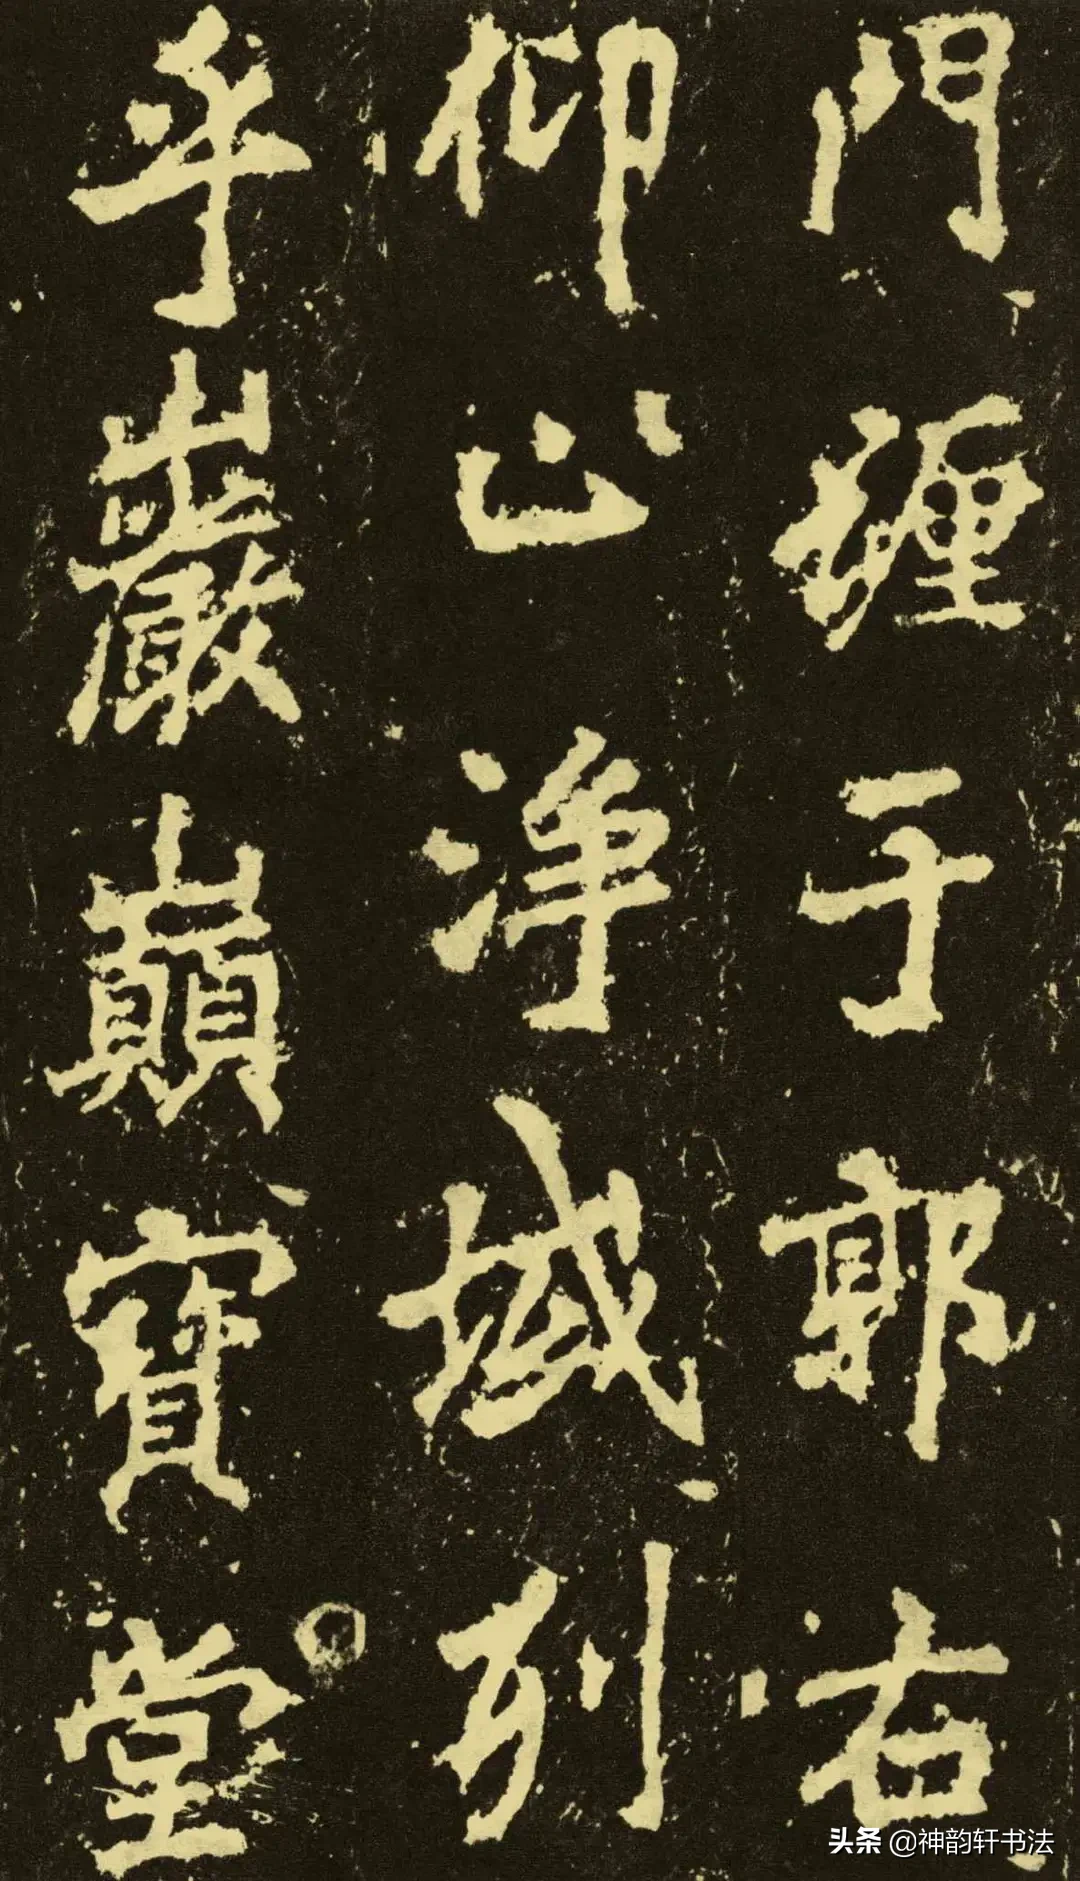 門纏于郭右
仰止淨域列
乎巖巔寶堂
头条 @神韵轩书法